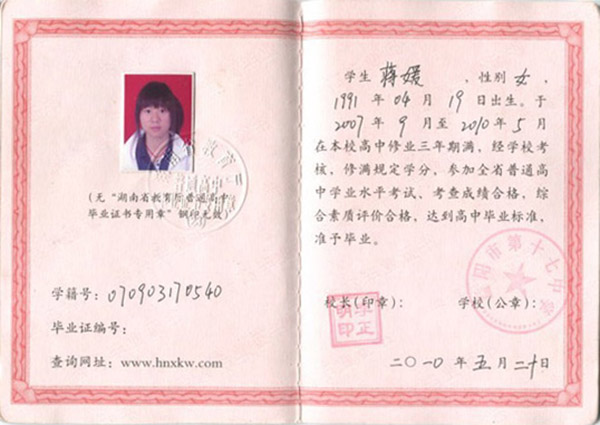 (无“湖南省教育厅普通高中
毕业证书专用章”钢印无效)
学籍号:070903170540
毕业证编号:
查询网址:www.hnxkw.com
学生 蒋媛 ,性别 女 ,
1991 年 04 月 19 日出生。于
2007 年 9 月至 2010 年 5 月
在本校高中修业三年期满,经学校考
核,修满规定学分,参加全省普通高
中学业水平考试、考查成绩合格,综
合素质评价合格,达到高中毕业标准,
准予毕业。
校长(印章): 学校(公章):
李正明印
阳市第十七中学
二〇一〇年 五 月 二十 日